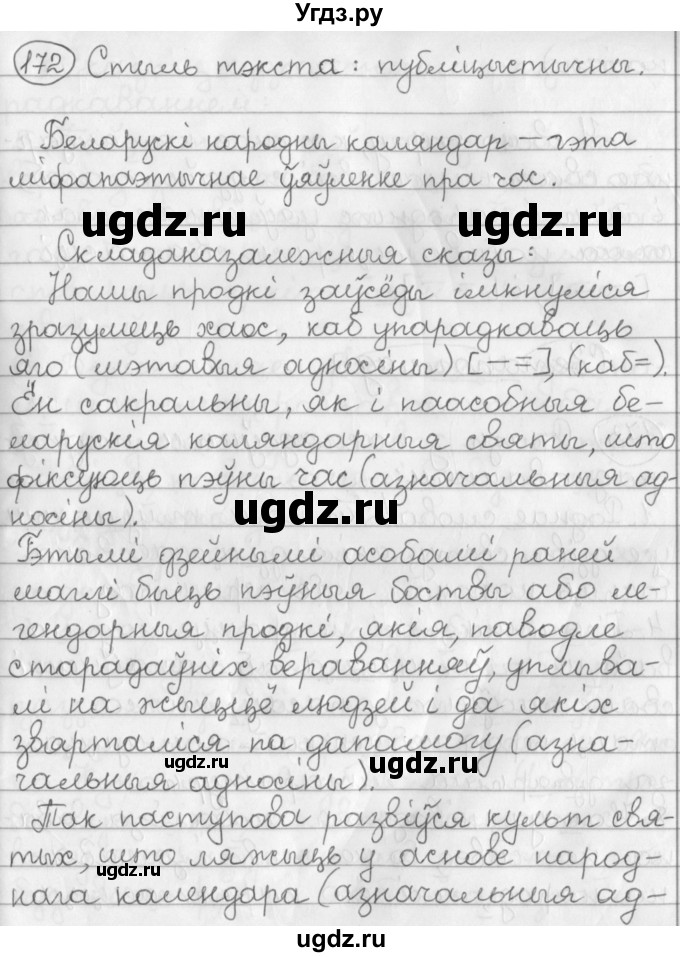 Угдз.ру
172 Стыль тэкста: публіцыстычны.
Беларускі народны каляндар – гэта
міфапаэтычнае ўяўленне пра час.
ugdz.ru ugdz.ru
Складаназалежныя сказы:
Нашы продкі заўсёды імкнуліся
зразумець хаос, каб упарадкаваць
яго (мэтавыя адносіны) [– =], (каб =).
Ён сакральны, як і паасобныя бе-
ларускія каляндарныя святы, што
фіксуюць пэўны час (азначальныя ад-
носіны).
ugdz.ru
Гэтымі дзейнымі асобамі раней
маглі быць пэўныя боствы або ле-
гендарныя продкі, якія, паводле
старадаўніх вераванняў, уплыва-
лі на жыццё людзей і да якіх
звярталіся па дапамогу (азна-
чальныя адносіны).
ugdz.ru ugdz.ru
Так паступова развіўся культ свя-
тых, што ляжыць у аснове народ-
нага календара (азначальныя ад-
ugdz.ru
ugdz.ru